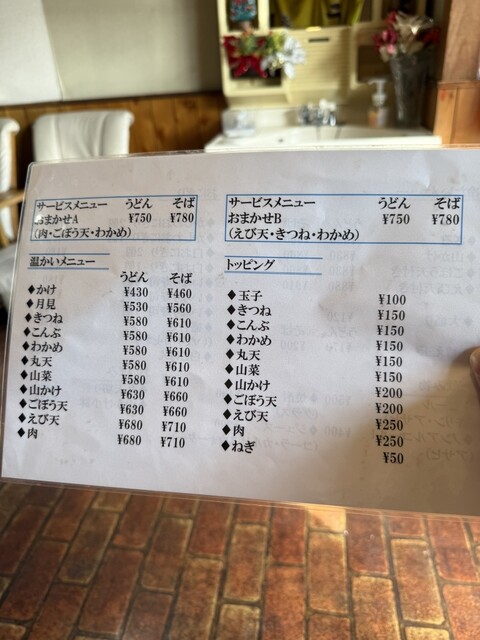 サービスメニュー うどん そば
おまかせA ¥750 ¥780
(肉・ごぼう天・わかめ)
温かいメニュー
うどん そば
◆かけ ¥430 ¥460
◆月見 ¥530 ¥560
◆きつね ¥580 ¥610
◆こんぶ ¥580 ¥610
◆わかめ ¥580 ¥610
◆丸天 ¥580 ¥610
◆山菜 ¥580 ¥610
◆山かけ ¥630 ¥660
◆ごぼう天 ¥630 ¥660
◆えび天 ¥680 ¥710
◆肉 ¥680 ¥710
サービスメニュー うどん そば
おまかせB ¥750 ¥780
(えび天・きつね・わかめ)
トッピング
◆玉子 ¥100
◆きつね ¥150
◆こんぶ ¥150
◆わかめ ¥150
◆丸天 ¥150
◆山菜 ¥150
◆山かけ ¥200
◆ごぼう天 ¥200
◆えび天 ¥250
◆肉 ¥250
◆ねぎ ¥50